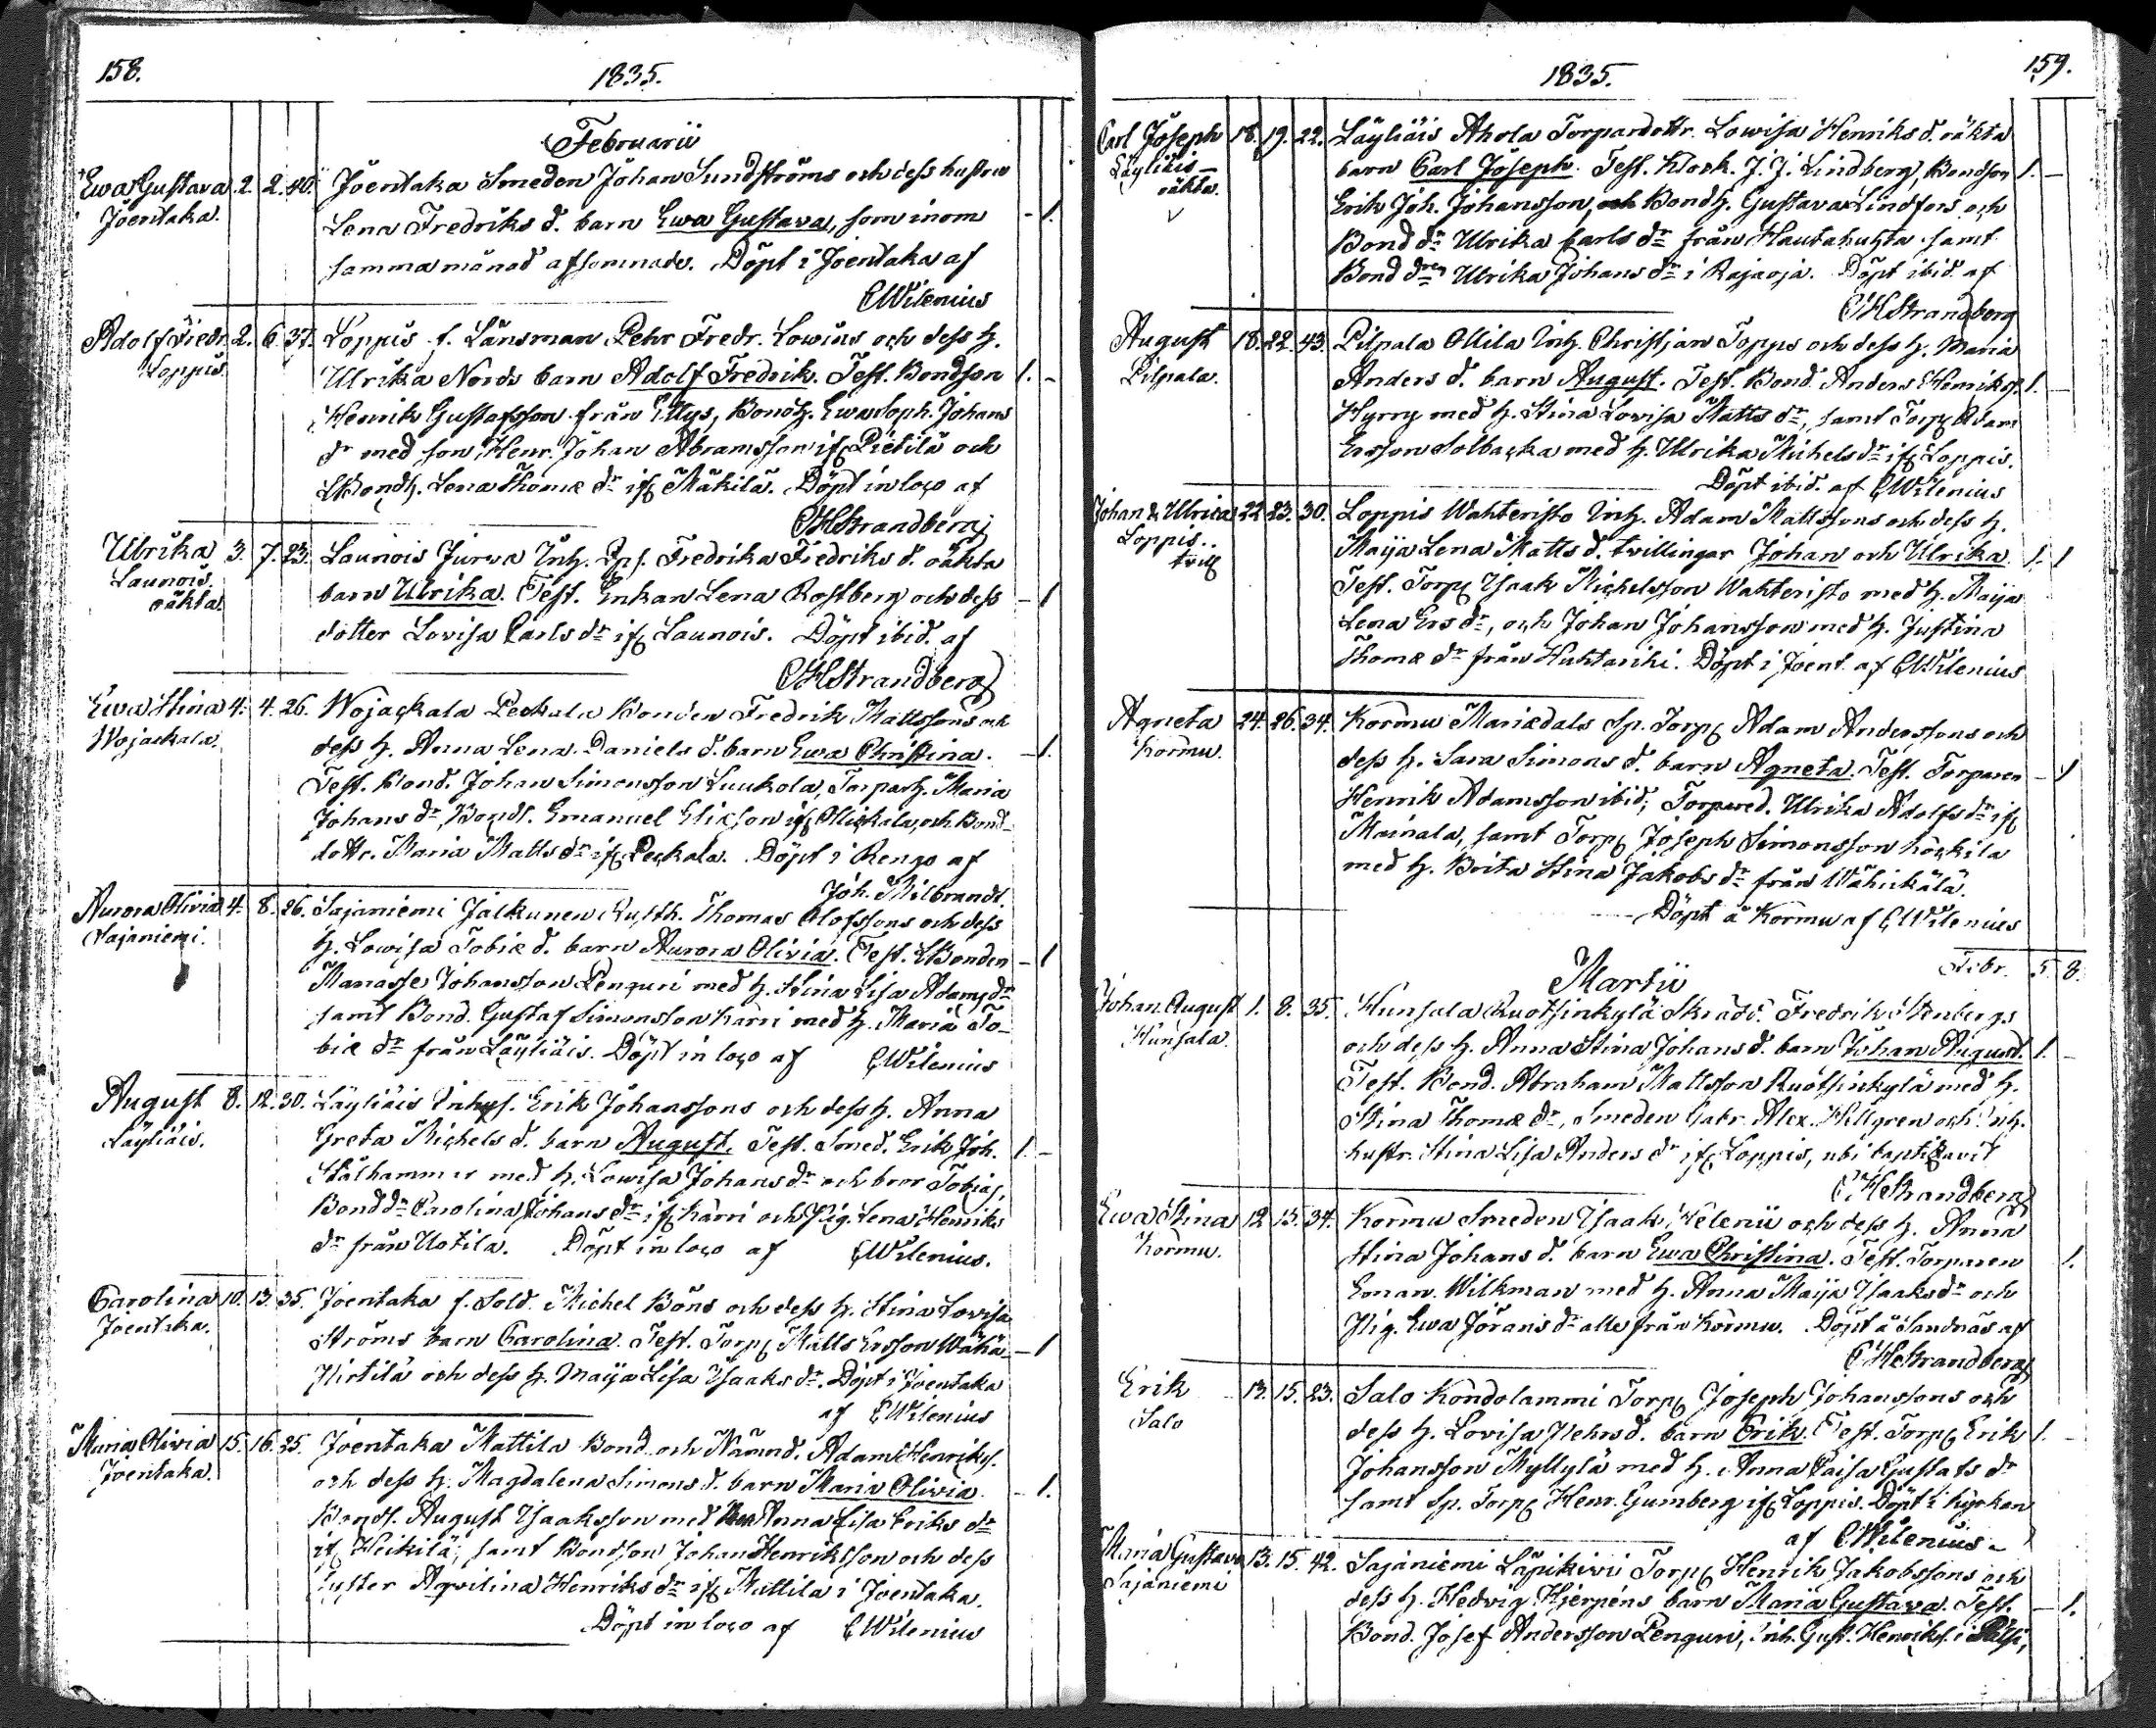 158.
1835.
Februarii
Ewa Gustava 2. 2. 40. Joentaka Smeden Johan Sundströms och dess hustru
Joentaka. Lena Fredriks d. barn Ewa Gustava, som inom - 1.
samma månad afsomnade. Döpt i Joentaka af
CWilenius
Adolf Fredr. 2. 6. 37. Loppis f. Länsman Pehr Fredr. Lowins och dess h.
Loppis. Ulrika Nords barn Adolf Fredrik. Test. Bondson 1. -
Henrik Gustafsson från Ettys, Bondh. Ewa Soph. Johans
dr med son Henr. Johan Abramsson ifr Pietilä och
Bondh. Lena Thomæ dr ifr Mäkilä. Döpt in loco af
CHStrandberg
Ulrika 3. 7. 23. Launois Jurwa Inh. Fredrika Fredriks d. oäkta
Launois. barn Ulrika. Test. Enkan Lena Rostberg och dess - 1
oäkta dotter Lovisa Carls dr ifr Launois. Döpt ibid. af
CHStrandberg
Ewa Stina 4. 4. 26. Wojackala Peckala Bonden Fredrik Mattssons och
Wojackala. dess h. Anna Lena Daniels d. barn Ewa Christina. - 1.
Test. Bond. Johan Simonsson Luukola, Torparh. Maria
Johans dr, Bonds. Emanuel Elixson ifr Ollickala, och Bond-
dottr. Maria Matts dr ifr Peckala. Döpt i Rengo af
Joh. Milbrandt.
Aurora Olivia 4. 8. 26. Sajaniemi Jalkunen Rusth. Thomas Olofssons och dess
Sajaniemi. h. Lowisa Tobiæ d. barn Aurora Olivia. Test. Bonden - 1
Manasse Johansson Penguri med h. Stina Lisa Adams dr
samt Bond. Gustaf Simonsson Karri med h. Maria To-
biæ dr från Läyliäis. Döpt in loco af CWilenius
August 8. 12. 30. Läyliäis Inhys. Erik Johanssons och dess h. Anna
Läyliäis. Greta Michels d. barn August. Test. Smed. Erik Joh. 1. -
Stålhammer med h. Lowisa Johans dr och bror Tobias,
Bond dr Carolina Johans dr ifr Karri och Pig. Lena Henriks
dr från Uotila. Döpt in loco af CWilenius.
Carolina 10. 13. 35. Joentaka f. Sold. Michel Böns och dess h. Stina Lovisa
Joentaka. Ströms barn Carolina. Test. Torp. Matts Ersson Wähä- - 1
Pirtilä och dess h. Maija Lisa Isaaks dr. Döpt i Joentaka
af CWilenius
Maria Olivia 15. 16. 25. Joentaka Mattila Bond. och Nämnd. Adam Henrikss.
Joentaka. och dess h. Magdalena Simons d. barn Maria Olivia. - 1.
Bonds. August Isaaksson med Anna Lisa Eriks dr
ifr Heikilä, samt Bondson Johan Henriksson och dess
syster Aqvilina Henriks dr ifr Mattila i Joentaka.
Döpt in loco af CWilenius
1835.
159.
Carl Joseph 18. 19. 22. Läyliäis Ahola Torpardottr. Lowisa Henriks d. oäkta
Läyliäis barn Carl Joseph. Test. Klock. J. J. Lindberg, Bondson 1. -
oäkta. Erik Joh. Johansson, Bondh. Gustava Lindfors och
Bond dr Ulrika Carls dr från Hautahuhta samt
Bond dren Ulrika Johans dr i Rajaoja. Döpt ibid. af
CHStrandberg
August 18. 22. 43. Pilpala Ollila Inh. Christjan Topps och dess h. Maria
Pilpala. Anders d. barn August. Test. Bond. Anders Henrikss. 1. -
Hyrry med h. Stina Lovisa Matts dr, samt Torp. Adam
Ersson Solbacka med h. Ulrika Michels dr ifr Loppis.
Döpt ibid. af CWilenius
Johan & Ulrica 22 23. 30. Loppis Wahteristo Inh. Adam Mattssons och dess h.
Loppis. Maija Lena Matts d. tvillingar Johan och Ulrika. 1. 1
tvill Test. Torp. Isaak Michelsson Wahteristo med h. Maija
Lena Ers dr, och Johan Johansson med h. Justina
Thomæ dr från Huhtariki. Döpt i Joent. af CWilenius
Agneta 24. 26. 34. Kormu Mariædals Sp. Torp. Adam Anderssons och
Kormu. dess h. Sara Simons d. barn Agneta. Test. Torparen - 1
Henrik Adamsson ibid, Torpared. Ulrika Adolfs dr ifr
Mainala, samt Torp. Joseph SimonssonKöckila
med h. Brita Stina Jakobs dr från Wähikälä.
Döpt å Kormu af CWilenius
Febr. 5. 8.
Martii
Johan August 1. 8. 35. Hunsala Ruotsinkylä Skrädd. Fredrik Stenbergs
Hunsala. och dess h. Anna Stina Johans d. barn Johan August. 1. -
Test. Bond. Abraham Mattsson Ruotsinkylä med h.
Stina Thomæ dr, Smeden Gabr. Alex. Hellgren och Inh.
hustr. Stina Lisa Anders dr ifr Loppis, ubi baptizavit
CHStrandberg
Ewa Stina 12 15. 34. Kormu Smeden Isaak Helenii och dess h. Anna
Kormu. Stina Johans d. barn Ewa Christina. Test. Torparen 1.
Eman. Wilkman med h. Anna Maija Isaaks dr och
Pig. Ewa Jörans dr alle från Kormu. Döpt å Sandnäs af
CHStrandberg
Erik 13. 15. 23. Salo Kondolammi Torp. Joseph Johanssons och
Salo dess h. Lovisa Pehrs d. barn Erik. Test. Torp. Erik 1. -
Johansson Myllylä med h. Anna Caisa Gustafs dr
samt Sp. Torp. Henr. Gumberg ifr Loppis. Döpt i kyrkan
af CWilenius
Maria Gustava 13. 15. 42. Sajaniemi Läpikivi Torp. Henrik Jakobssons och
Sajaniemi dess h. Hedvig Hjerpens barn Maria Gustava. Test. - 1.
Bond. Josef Andersson Penguri, Inh. Gust. Henrikss. i